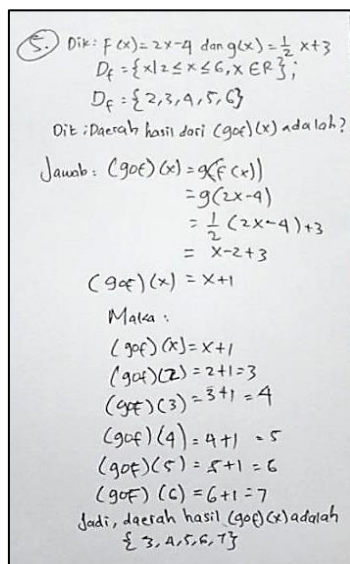 5. Dik: F(x)=2x-4 dan g(x)=½x+3
Df = {x|2≤x≤6, x ∈R};
Df = {2,3,4,5,6}
Dit: Daerah hasil dari (gof)(x) adalah?
Jawab: (gof)(x) = g(F(x))
= g(2x-4)
= ½ (2x-4)+3
= x-2+3
(gof)(x) = x+1
Maka:
(gof)(x)=x+1
(gof)(2)=2+1=3
(gof)(3)=3+1=4
(gof)(4)=4+1=5
(gof)(5)=5+1=6
(gof)(6)=6+1=7
Jadi, daerah hasil (gof)(x) adalah
{3,4,5,6,7}